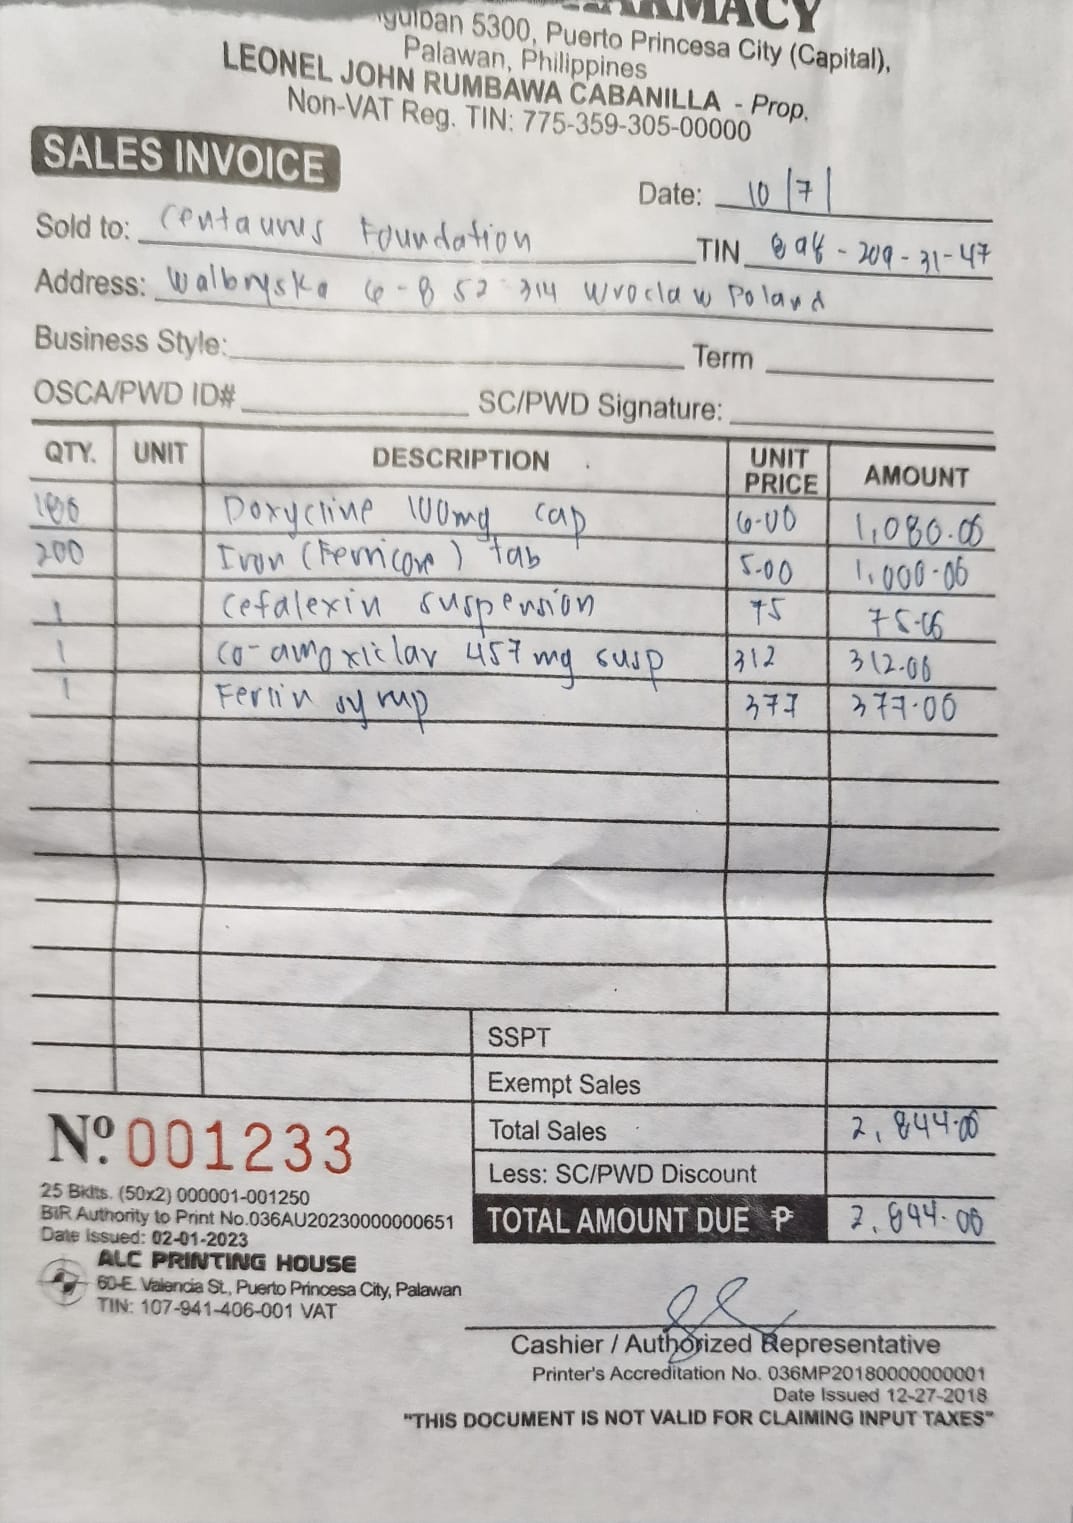 PHARMACY
5300, Puerto Princesa City (Capital),
Palawan, Philippines
LEONEL JOHN RUMBAWA CABANILLA - Prop.
Non-VAT Reg. TIN: 775-359-305-00000
SALES INVOICE
Date: 10/7/
Sold to: Centaurus Foundation
TIN 898-209-31-47
Address: Walbryska 6-8 52-314 Wroclaw Poland
Business Style:
Term
OSCA/PWD ID#
SC/PWD Signature:
QTY. UNIT DESCRIPTION UNIT PRICE AMOUNT
Doxycline 100mg cap 6.00 1,080.00
200 Iron (Ferricore) tab 5.00 1,000.00
1 Cefalexin suspension 75 75.00
1 Co-amoxiclav 457mg susp 312 312.00
1 Ferlin syrup 377 377.00
SSPT
Exempt Sales
Total Sales 2,844.00
Less: SC/PWD Discount
TOTAL AMOUNT DUE ₱ 2,844.00
Nº. 001233
25 Bklts. (50x2) 000001-001250
BIR Authority to Print No.036AU20230000000651
Date Issued: 02-01-2023
ALC PRINTING HOUSE
60-E. Valencia St., Puerto Princesa City, Palawan
TIN: 107-941-406-001 VAT
Cashier / Authorized Representative
Printer's Accreditation No. 036MP20180000000001
Date Issued 12-27-2018
"THIS DOCUMENT IS NOT VALID FOR CLAIMING INPUT TAXES"